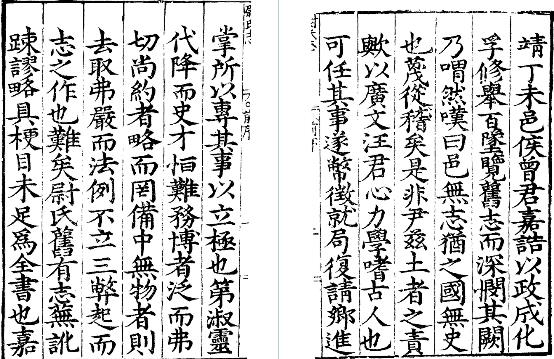 掌所以專其事以立極也第淑靈
代降而史才恒難務博者泛而弗
切尚約者略而罔備中無物者則
去取弗嚴而法例不立三弊起而
志之作也難矣尉氏舊有志蕪訛
踈謬略具梗目未足爲全書也嘉
靖丁未邑侯曾君嘉誥以政成化
孚修舉百墜覽舊志而深憫其闕
乃喟然嘆曰邑無志猶之國無史
也蔑從稽矣是非尹茲土者之責
歟以廣文汪君心力學嗜古人也
可任其事遂幣徵就局復請鄉進